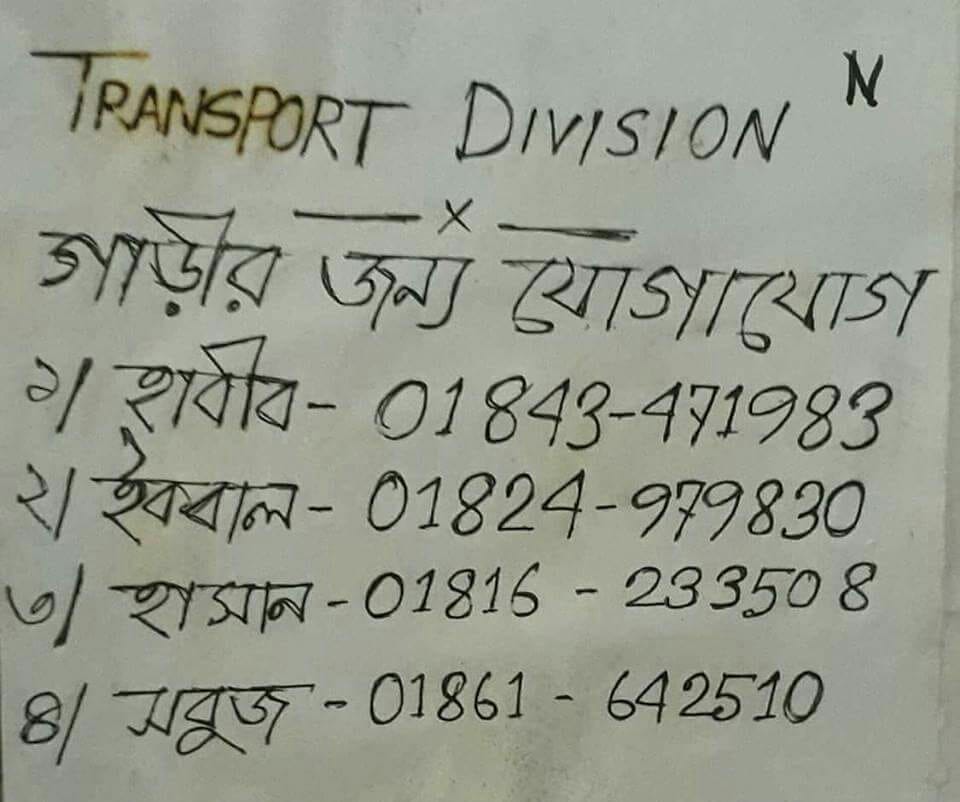 TRANSPORT DIVISION N
— x —
গাড়ীর জন্য যোগাযোগ
১/ হাবীব - 01843-471983
২/ ইকবাল - 01824-979830
৩/ হাসান - 01816 - 233508
৪/ সবুজ - 01861 - 642510